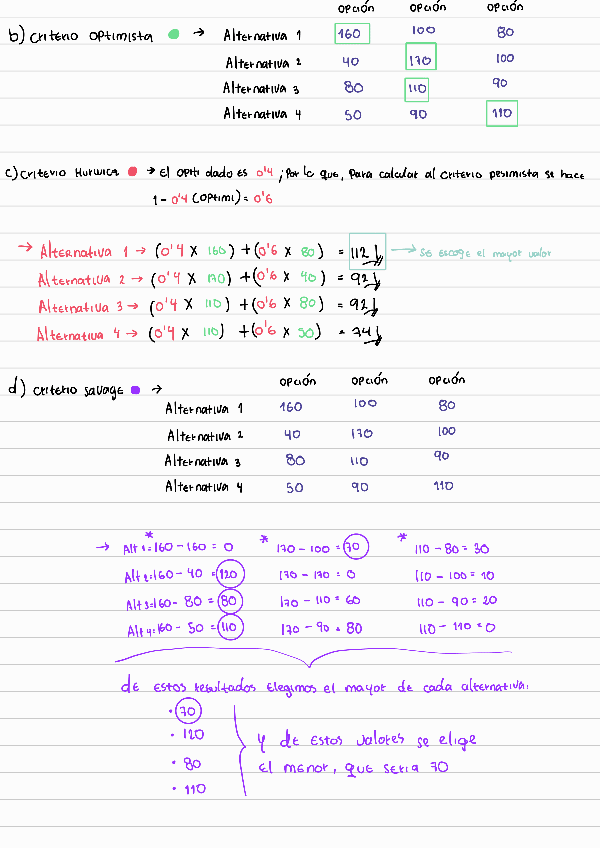 opción opción opción
b) Criterio optimista → Alternativa 1 160 100 80
Alternativa 2 40 170 100
Alternativa 3 80 110 90
Alternativa 4 50 90 110
c) Criterio Hurwica → El opti dado es 0'4 ; Por lo que, para calcular al criterio pesimista se hace
1 - 0'4 (optimi) = 0'6
→ Alternativa 1 → (0'4 x 160) + (0'6 x 80) = 112 → Se escoge el mayor valor
Alternativa 2 → (0'4 x 170) + (0'6 x 40) = 92
Alternativa 3 → (0'4 x 110) + (0'6 x 80) = 92
Alternativa 4 → (0'4 x 110) + (0'6 x 50) = 74
d) Criterio Savage → opción opción opción
Alternativa 1 160 100 80
Alternativa 2 40 170 100
Alternativa 3 80 110 90
Alternativa 4 50 90 110
→ Alt 1=160 - 160 = 0 * 170 - 100 = 70 * 110 - 80 = 30
Alt 2=160 - 40 = 120 170 - 170 = 0 110 - 100 = 10
Alt 3=160 - 80 = 80 170 - 110 = 60 110 - 90 = 20
Alt 4=160 - 50 = 110 170 - 90 = 80 110 - 110 = 0
de estos resultados elegimos el mayor de cada alternativa:
• 70
• 120
• 80
• 110
y de estos valores se elige
el menor, que seria 70